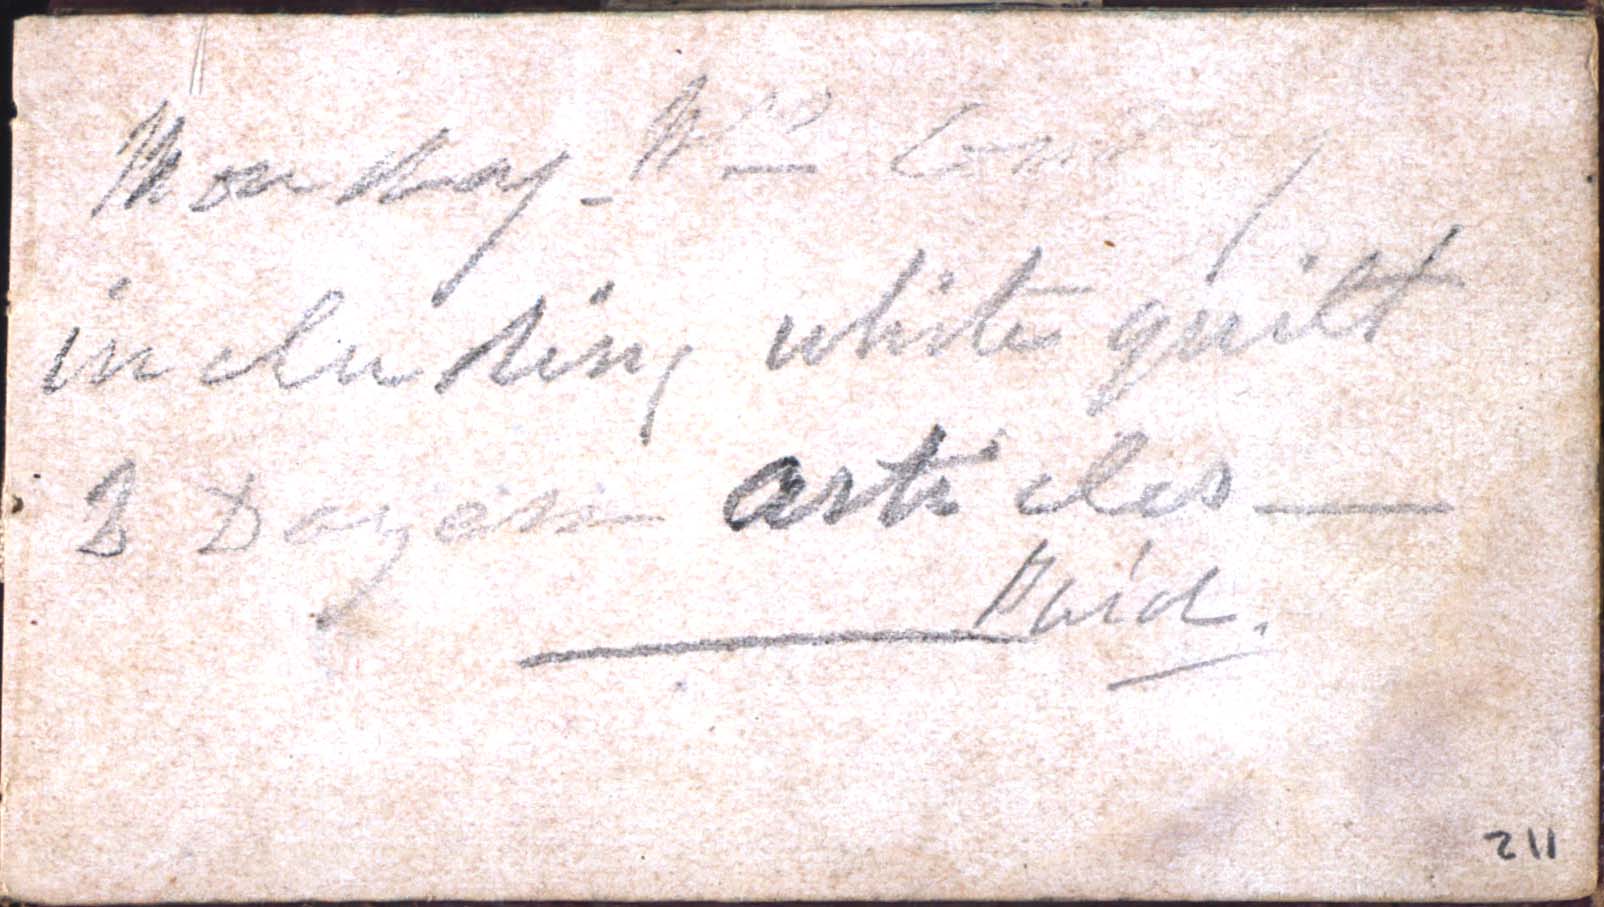 Monday - Mrs
including white quilt
3 Dozen articles —
Paid.
211